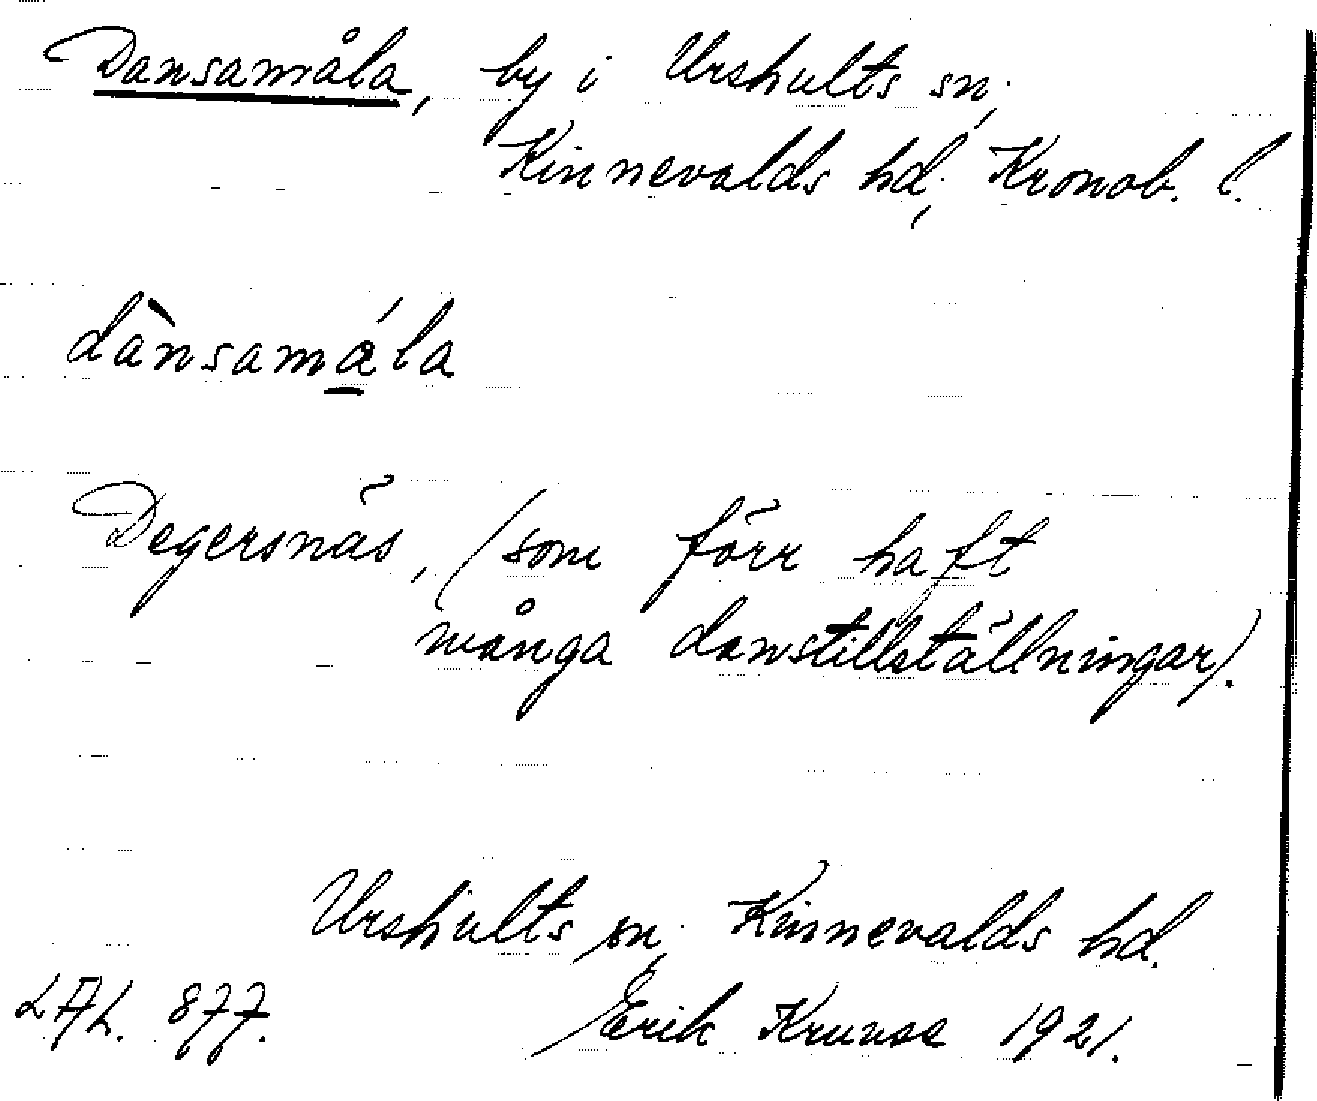 Dansamåla, by i Urshults sn.,
Kinnevalds hd., Kronob. l.
dànsamála
Degersnäs, (som förr haft
många danstillställningar).
Urshults sn. Kinnevalds hd.
LAL. 877. Erik Kruuse 1921.